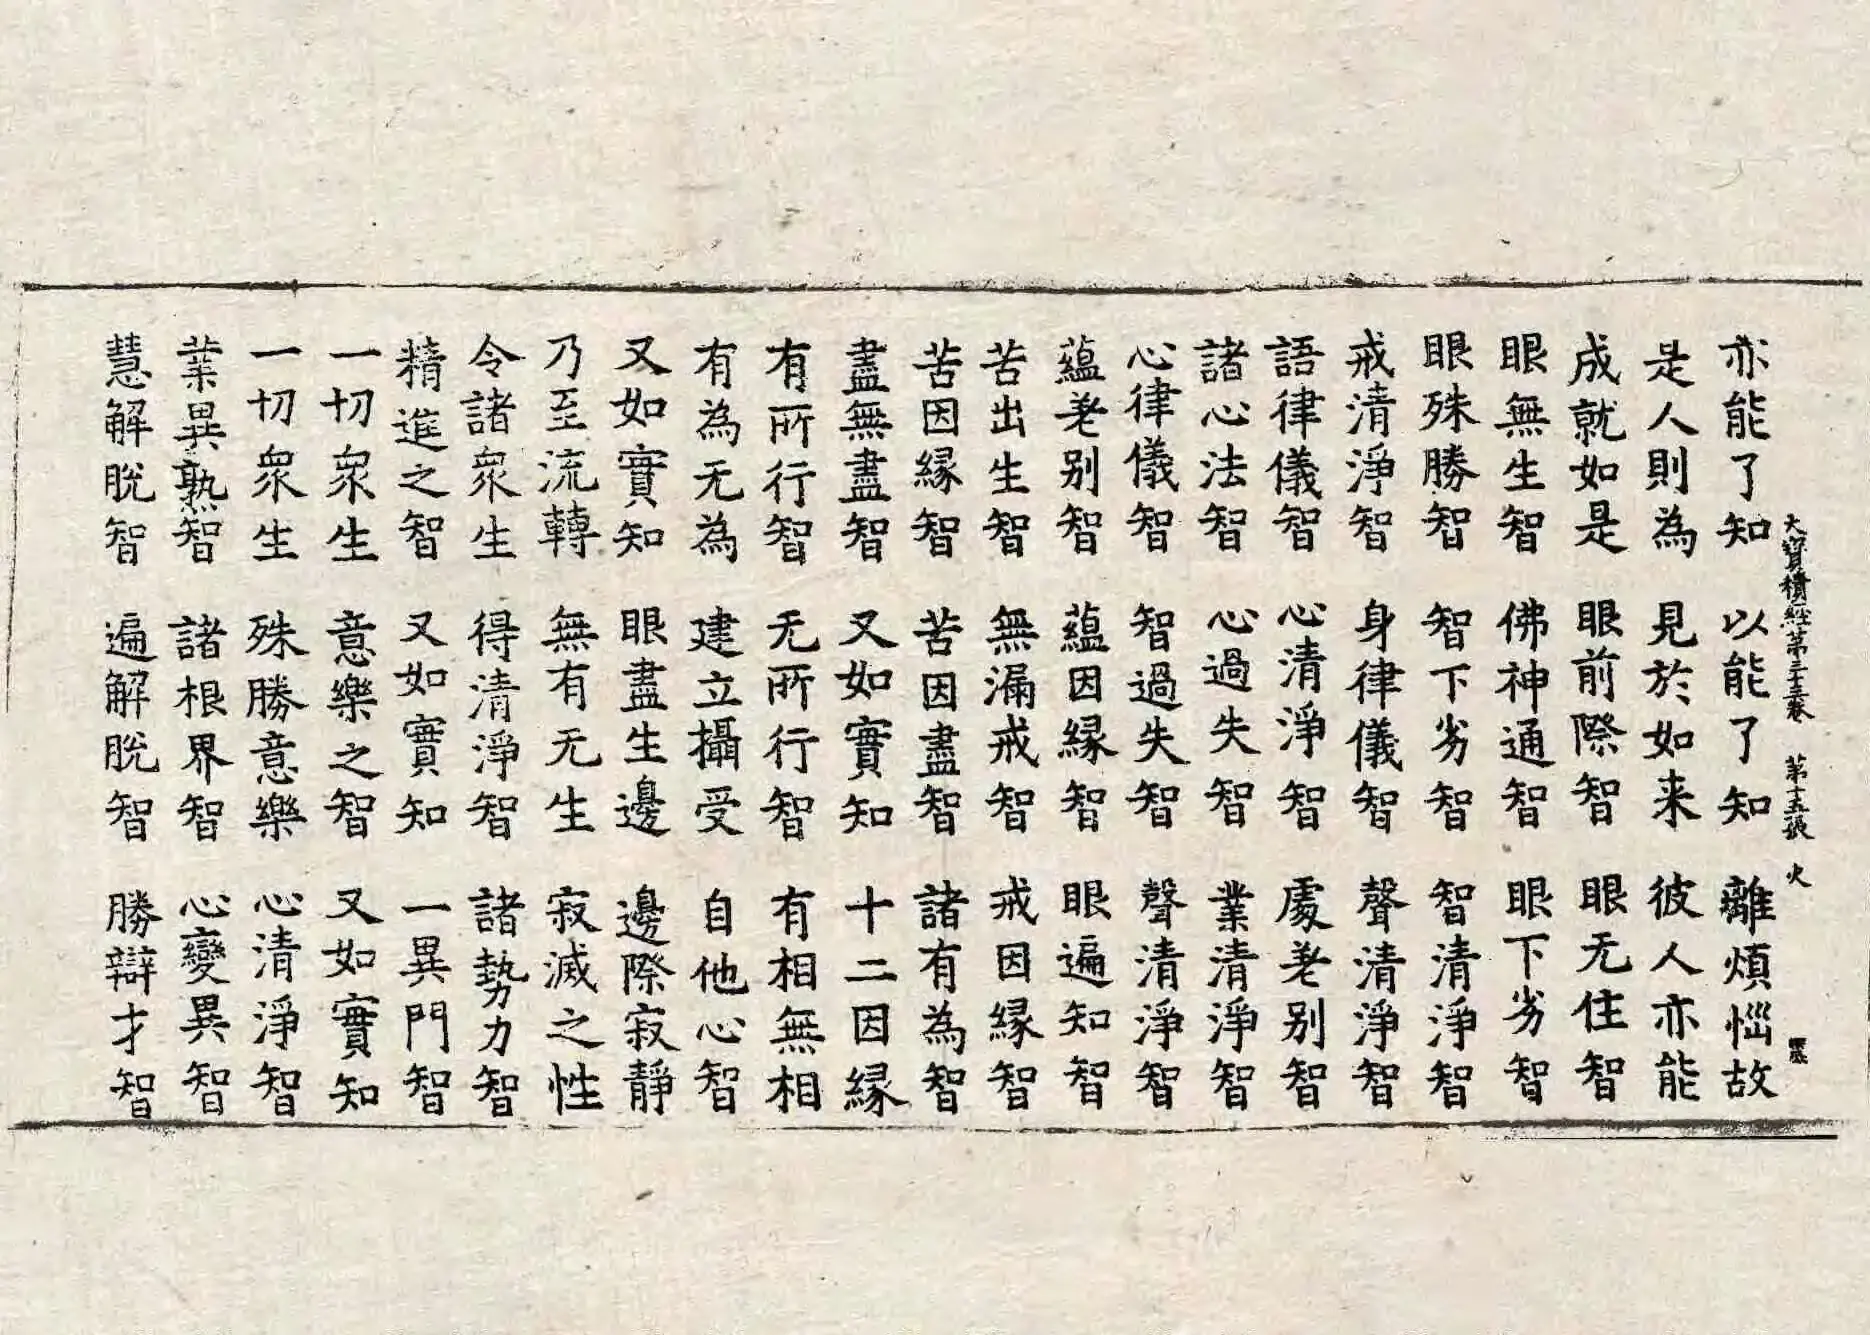 大寳積經第三十三卷 第十五張 火
亦能了知 以能了知 離煩惱故
是人則為 見於如来 彼人亦能
成就如是 眼前際智 眼无住智
眼無生智 佛神通智 眼下劣智
眼殊勝智 智下劣智 智清淨智
戒清淨智 身律儀智 聲清淨智
語律儀智 心清淨智 處差别智
諸心法智 心過失智 業清淨智
心律儀智 智過失智 聲清淨智
蘊差别智 蘊因縁智 眼遍知智
苦出生智 無漏戒智 戒因縁智
苦因縁智 苦因盡智 諸有為智
盡無盡智 又如實知 十二因縁
有所行智 无所行智 有相無相
有為无為 建立攝受 自他心智
又如實知 眼盡生邊 邊際寂靜
乃至流轉 無有无生 寂滅之性
令諸衆生 得清淨智 諸勢力智
精進之智 又如實知 一異門智
一切衆生 意樂之智 又如實知
一切衆生 殊勝意樂 心清淨智
業異熟智 諸根界智 心變異智
慧解脫智 遍解脫智 勝辯才智